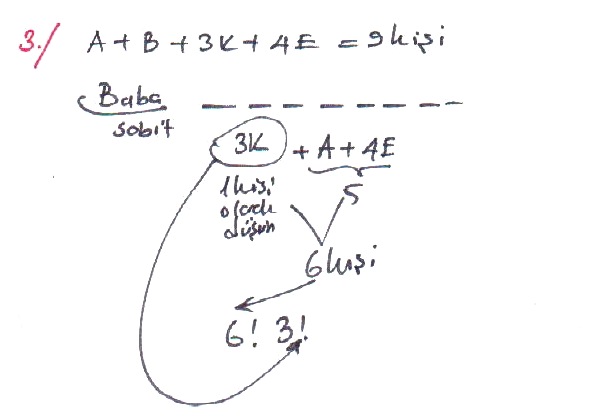 3./ A + B + 3K + 4E = 9 kişi
Baba — — — — — — — —
sabit
3K + A + 4E
1 kişi
olarak
düşün
5
6 kişi
6! 3!